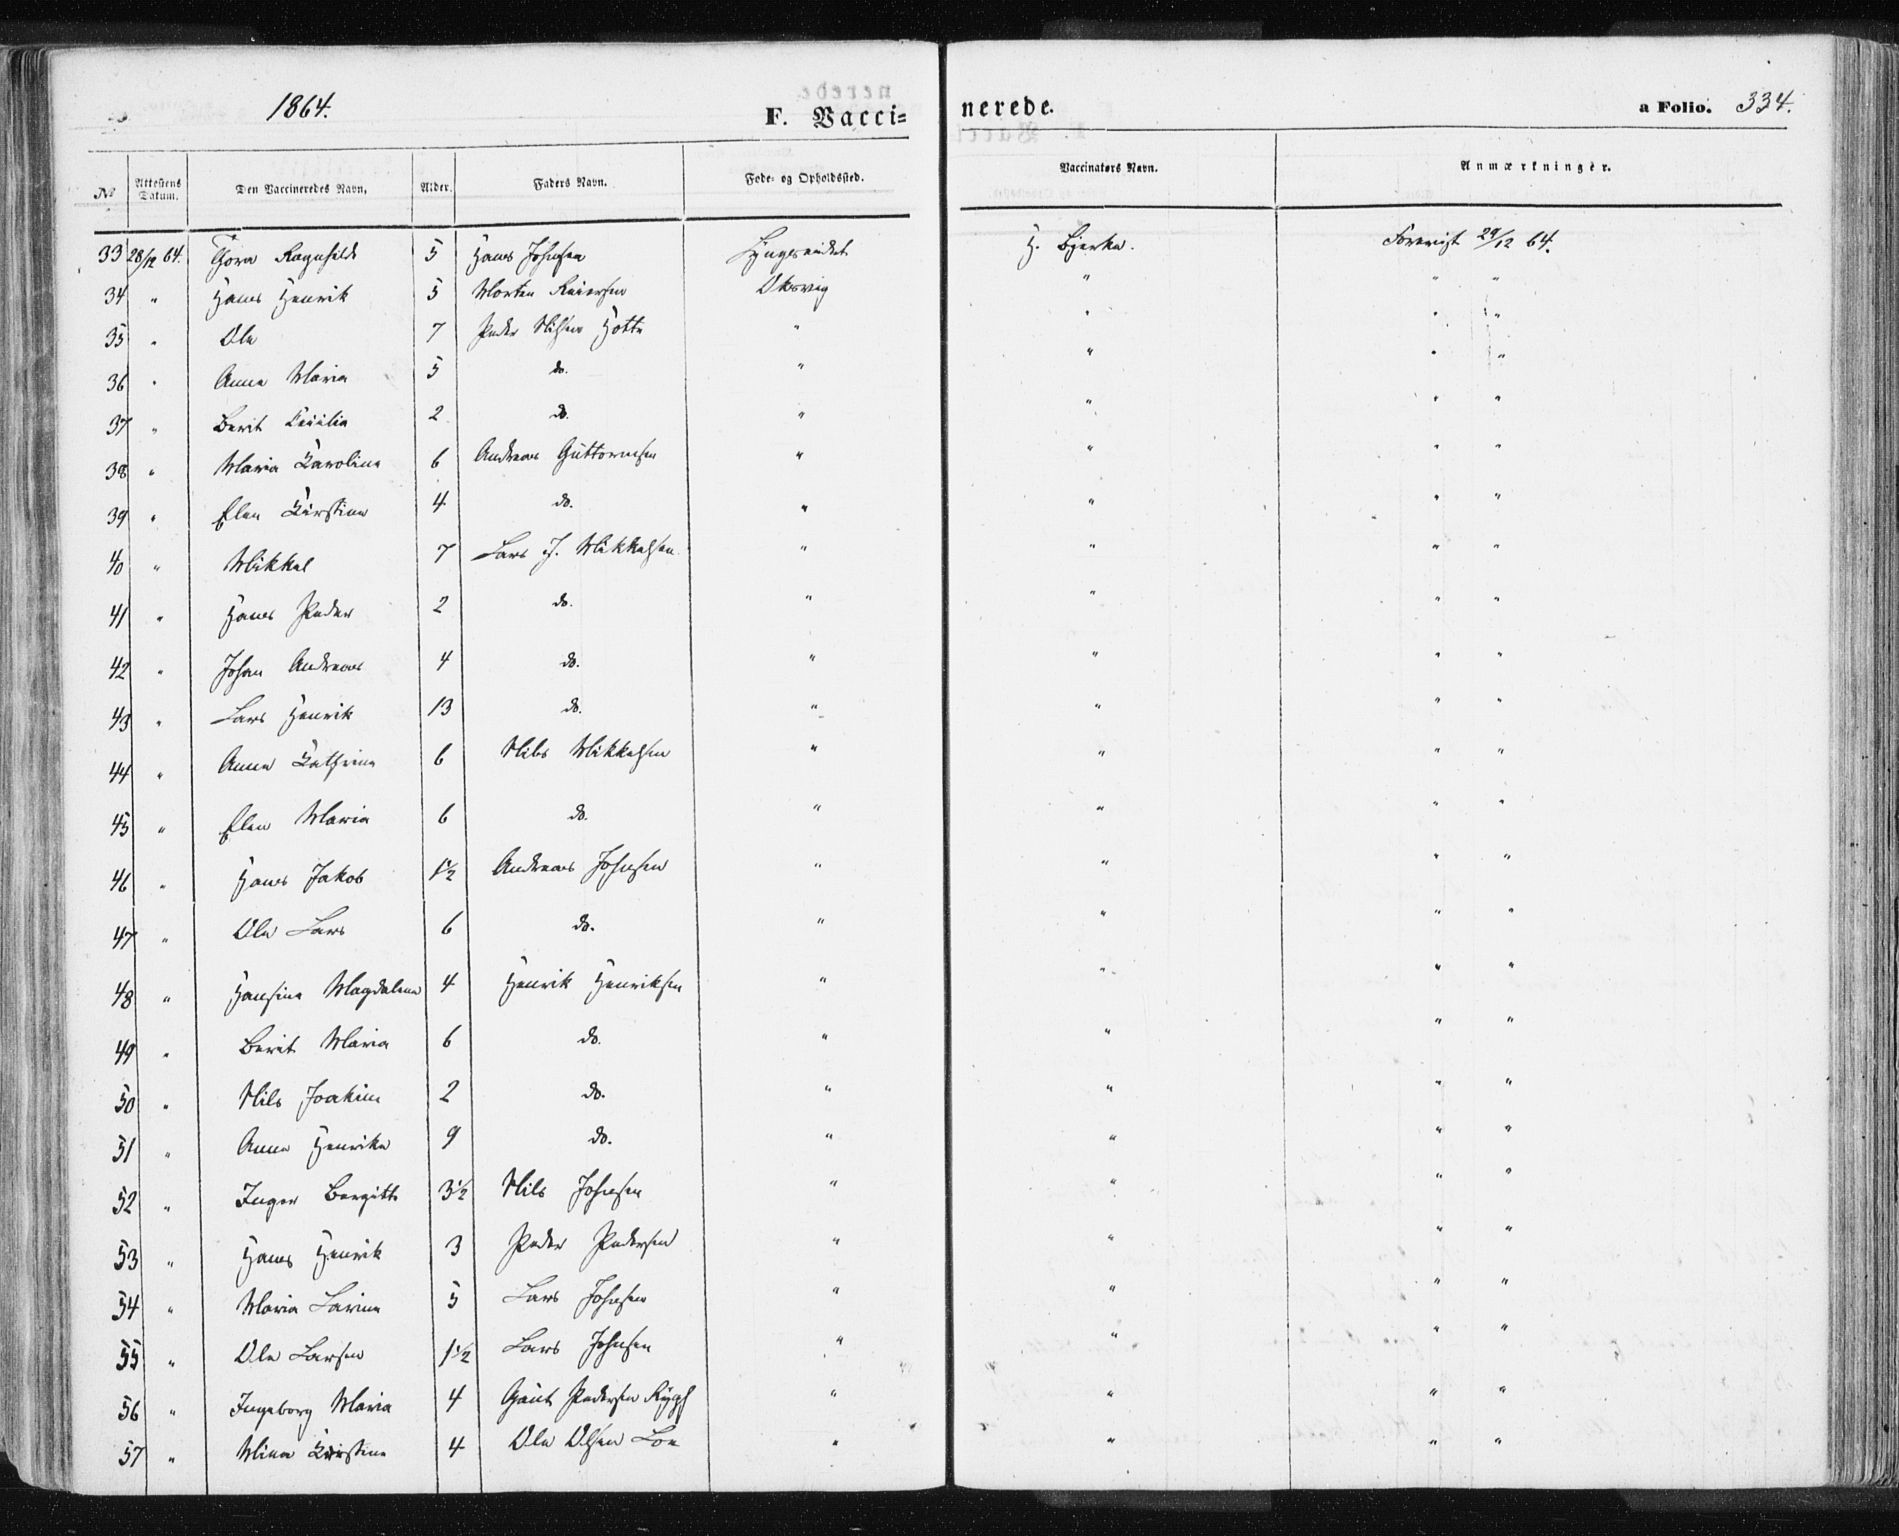 1864.
F. Vaccinerede. a Folio. 334.
No Attestens Datum. Den Vaccineredes Navn. Alder. Faders Navn. Føde- og Opholdssted. Vaccinators Navn. Anmærkninger.
33 28/12 64. Thora Ragnhild 5 Hans Johnsen Lyngseidet H. Bjerke. Foreviist 29/12 64.
34 " Hans Henrik 5 Morten Reiersen Oksvig " " "
35 " Ole 7 Peder Nilsen Hotte " " " "
36 " Anne Maria 5 do. " " " "
37 " Berit Cecilia 2 do. " " " "
38 " Maria Karoline 6 Andreas Guttormsen " " " "
39 " Elen Kirstine 4 do. " " " "
40 " Mikkel 7 Lars J. Mikkelsen " " " "
41 " Hans Peder 2 do. " " " "
42 " Johan Andreas 4 do. " " " "
43 " Lars Henrik 13 do. " " " "
44 " Anne Kathrine 6 Nils Mikkelsen " " " "
45 " Elen Maria 6 do. " " " "
46 " Hans Jakob 1½ Andreas Johnsen " " " "
47 " Ole Lars 6 do. " " " "
48 " Hansine Magdalena 4 Henrik Henriksen " " " "
49 " Berit Maria 6 do. " " " "
50 " Nils Joakim 2 do. " " " "
51 " Anne Henrike 9 do. " " " "
52 " Inger Bergitte 3½ Nils Johnsen " " " "
53 " Hans Henrik 3 Peder Pedersen " " " "
54 " Maria Larine 5 Lars Johnsen " " " "
55 " Ole Larsen 1½ Lars Johnsen " " " "
56 " Ingeborg Maria 4 Gaut Pedersen " " " "
57 " Mina Kirstine 4 Ole Olsen " " " "